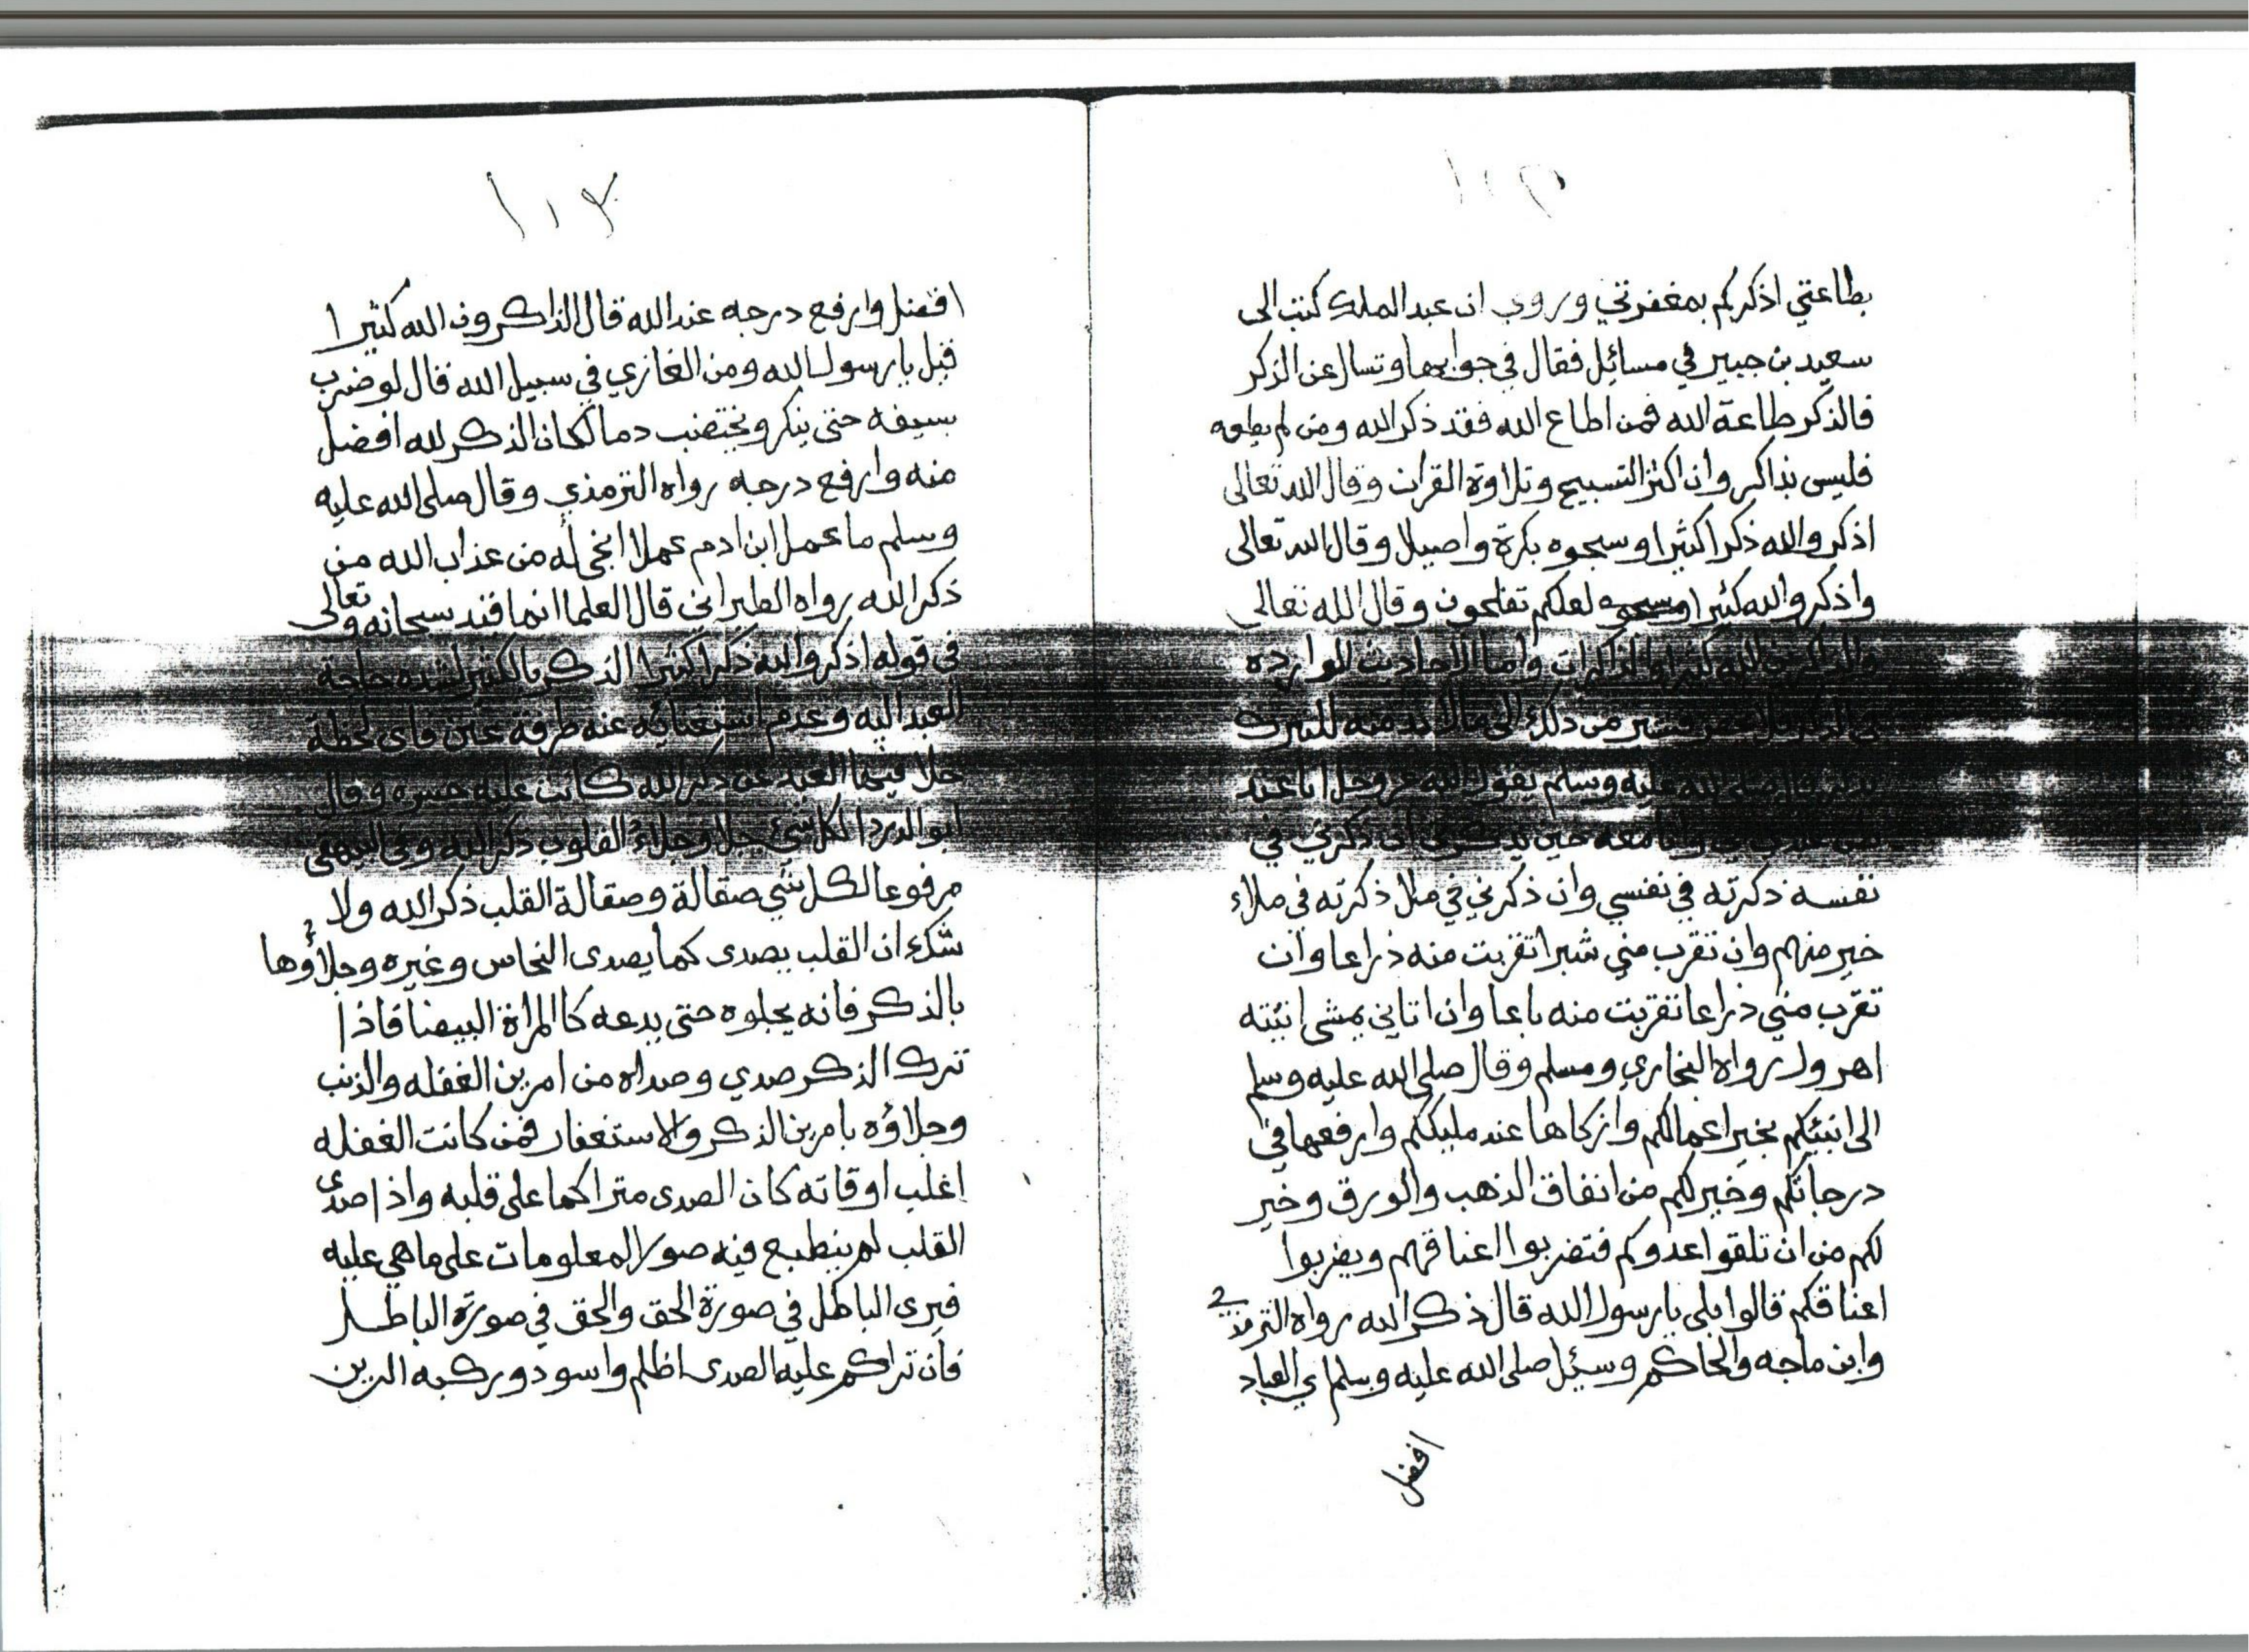 بطاعتي اذكركم بمغفرتي وروي ان عبد الملك كتب الى
سعيد بن جبير في مسائل فقال في جوابها وتسال عن الذكر
فالذكر طاعة الله فمن اطاع الله فقد ذكر الله ومن لم يطعه
فليس بذاكر وان اكثر التسبيح وتلاوة القران وقال الله تعالى
اذكروا الله ذكرا كثيرا وسبحوه بكرة واصيلا وقال الله تعالى
واذكروا الله كثيرا لعلكم تفلحون وقال الله تعالى
والذاكرين الله كثيرا والذاكرات واما الاحاديث الواردة
من ذلك الى مالا بد منه للتبرك
صلى الله عليه وسلم يقول الله عز وجل انا عند
ظن عبدي بي وانا معه حين يذكرني ان ذكرني في
نفسه ذكرته في نفسي وان ذكرني في ملا ذكرته في ملاء
خير منهم وان تقرب مني شبرا تقربت منه ذراعا وان
تقرب مني ذراعا تقربت منه باعا وان اتاني يمشي اتيته
اهرول رواه البخاري ومسلم وقال صلى الله عليه وسلم
الى انبئكم بخير اعمالكم وازكاها عند مليككم وارفعها في
درجاتكم وخير لكم من انفاق الذهب والورق وخير
لكم من ان تلقوا عدوكم فتضربوا اعناقهم ويضربوا
اعناقكم قالوا بلى يا رسول الله قال ذكر الله رواه الترمذي
وابن ماجه والحاكم وسئل صلى الله عليه وسلم اي العباد
افضل
١٠٣
افضل وارفع درجه عند الله قال الذاكرون الله كثيرا
قيل يا رسول الله ومن الغازي في سبيل الله قال لو ضرب
بسيفه حتى ينكر ويختضب دما لكان الذكر لله افضل
منه وارفع درجه رواه الترمذي وقال صلى الله عليه
وسلم ما عمل ابن ادم عملا انجى له من عذاب الله من
ذكر الله رواه الطبراني قال العلما انما قيد سبحانه وتعالى
في قوله اذكروا الله ذكرا كثيرا الذكر بالكثير لشدة حاجة
العبد اليه وعدم استغنائه عنه طرفة عين فاى لحظة
خلا فيها العبد عن ذكر الله كانت عليه حسره وقال
ابو الدردا لكل شئ جلا وجلاء القلوب ذكر الله وفي البيهقي
مرفوعا لكل شي صقالة وصقالة القلب ذكر الله ولا
شك ان القلب يصدى كما يصدى النحاس وغيره وجلاؤها
بالذكر فانه يجلوه حتى يدعه كا المراة البيضا فاذا
ترك الذكر صدي وصداه من امرين الغفله والذنب
وجلاؤه بامرين الذكر والاستغفار فمن كانت الغفله
اغلب اوقاته كان الصدى متراكما على قلبه واذا صدى
القلب لم ينطبع فيه صور المعلومات على ما هي عليه
فيرى الباطل في صورة الحق والحق في صورة الباطل
فان تراكم عليه الصدى اظلم واسود وركبه الرين